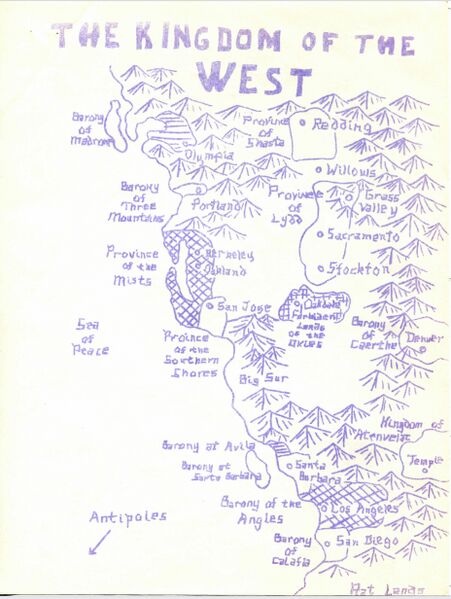 THE KINGDOM OF THE
WEST
Barony
of
Madrone
Province
of
Shasta
Redding
Olympia
Willows
Barony
of
Three
Mountains
Portland
Province
of
Lydd
Grass
Valley
Sacramento
Stockton
Province
of the
Mists
Berkeley
Oakland
San Jose
Oakdale
Lands
of the
Sea
of
Peace
Province
of the
Southern
Shores
Big Sur
Barony
of
Caerthe
Denver
Kingdom of
Atenveldt
Temple
Barony of Avila
Barony of
Santa Barbara
Santa
Barbara
Barony of the
Angles
Los Angeles
Antipoles
Barony
of
Calafia
San Diego
Lands